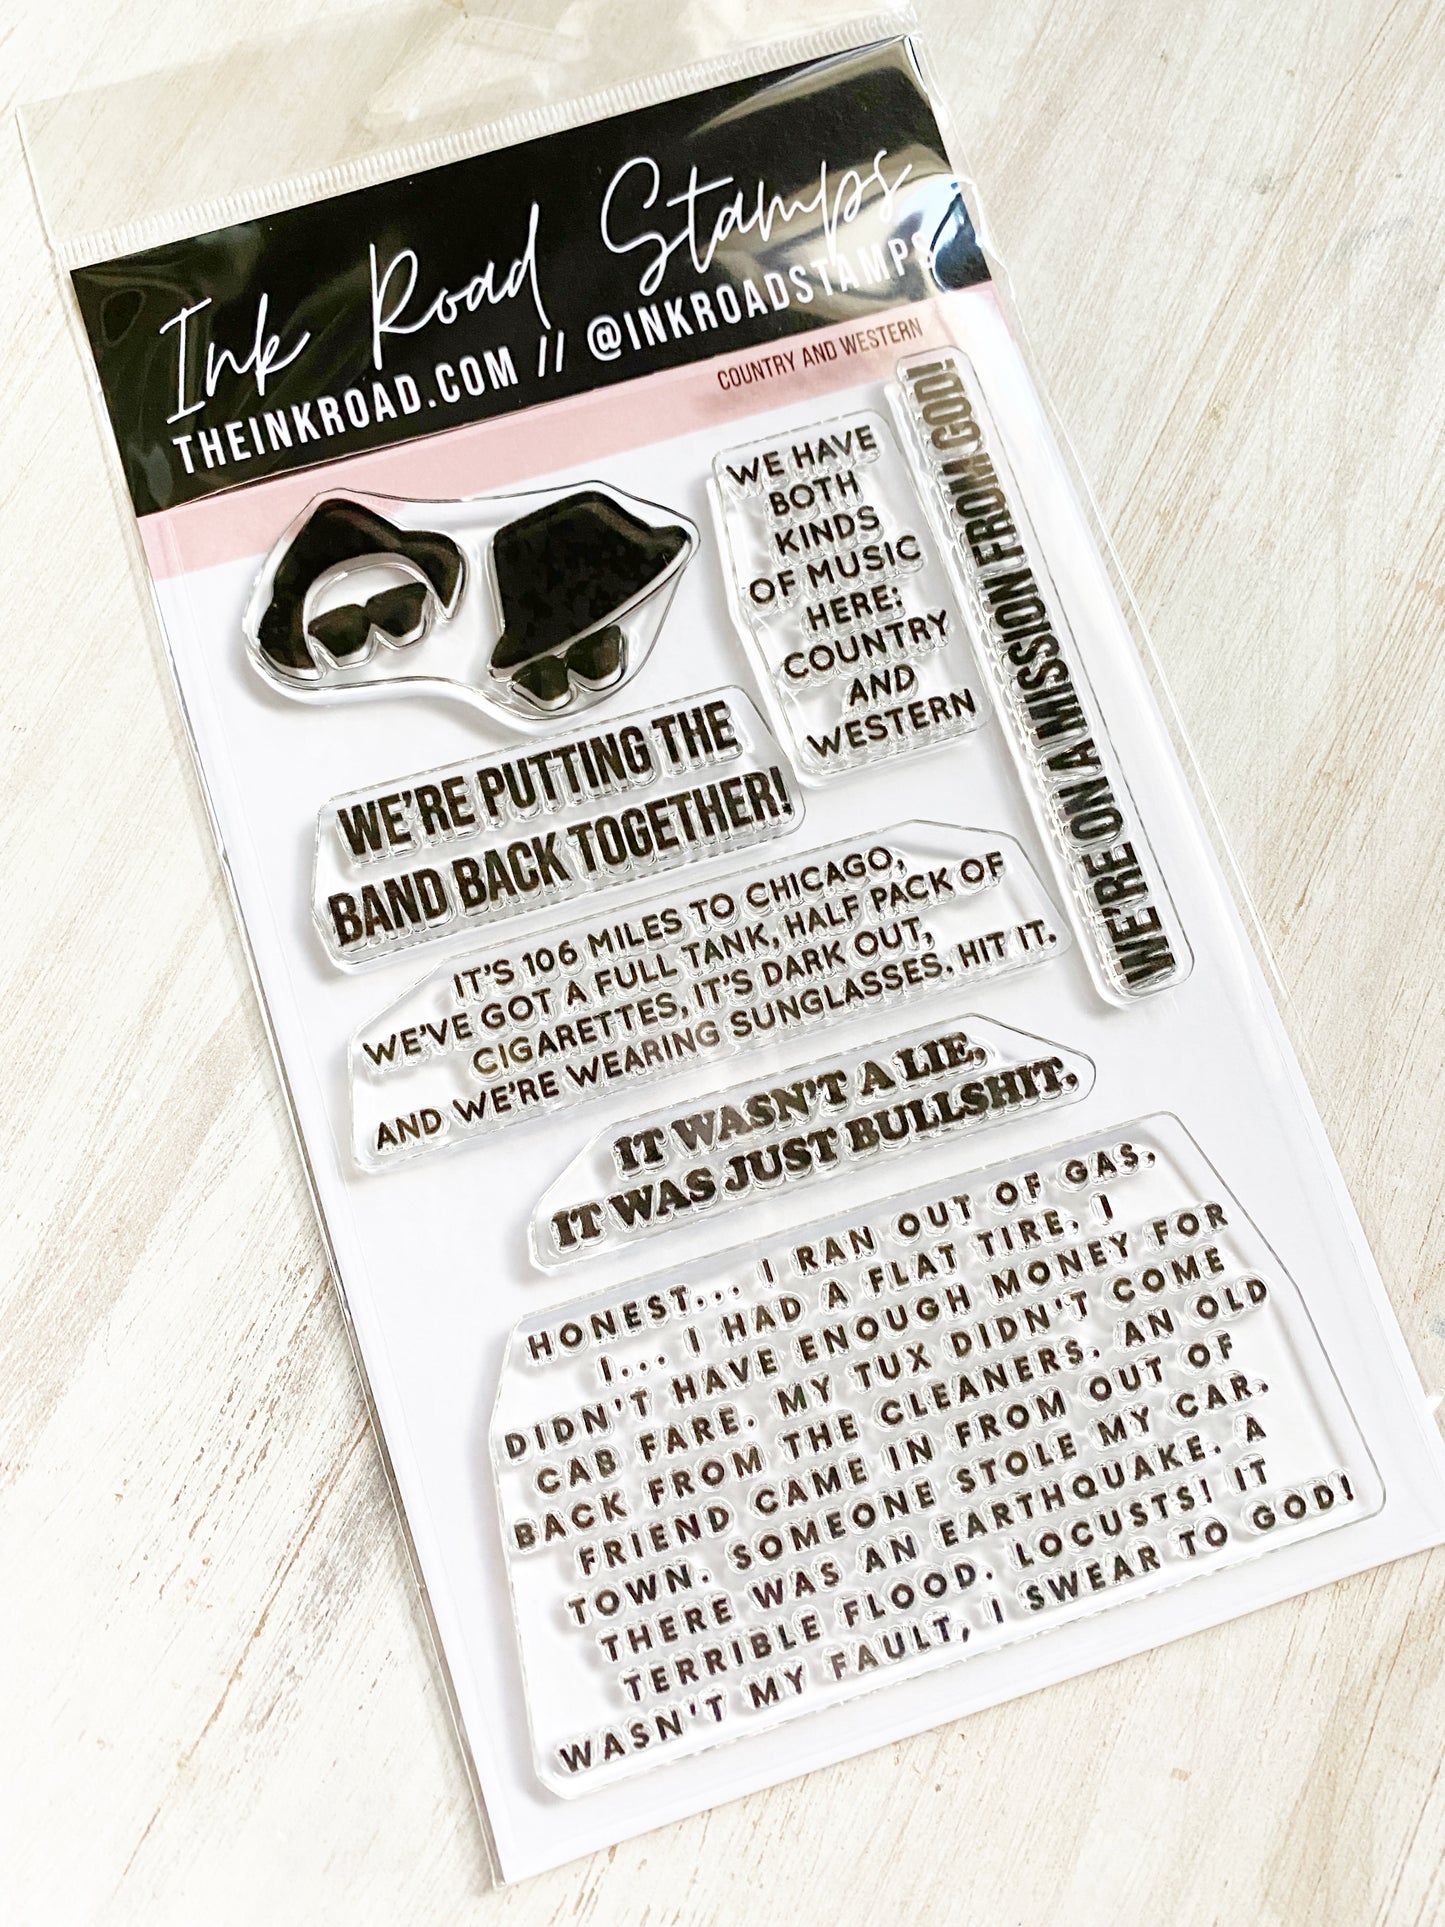 Ink Road Stamps
THEINKROAD.COM // @INKROADSTAMPS
COUNTRY AND WESTERN
WE HAVE
BOTH
KINDS
OF MUSIC
HERE:
COUNTRY
AND
WESTERN
WE'RE ON A MISSION FROM GOD!
WE'RE PUTTING THE
BAND BACK TOGETHER!
IT'S 106 MILES TO CHICAGO,
WE'VE GOT A FULL TANK, HALF PACK OF
CIGARETTES, IT'S DARK OUT,
AND WE'RE WEARING SUNGLASSES. HIT IT.
IT WASN'T A LIE,
IT WAS JUST BULLSHIT.
HONEST... I RAN OUT OF GAS.
I... I HAD A FLAT TIRE. I
DIDN'T HAVE ENOUGH MONEY FOR
CAB FARE. MY TUX DIDN'T COME
BACK FROM THE CLEANERS. AN OLD
FRIEND CAME IN FROM OUT OF
TOWN. SOMEONE STOLE MY CAR.
THERE WAS AN EARTHQUAKE. A
TERRIBLE FLOOD. LOCUSTS! IT
WASN'T MY FAULT, I SWEAR TO GOD!